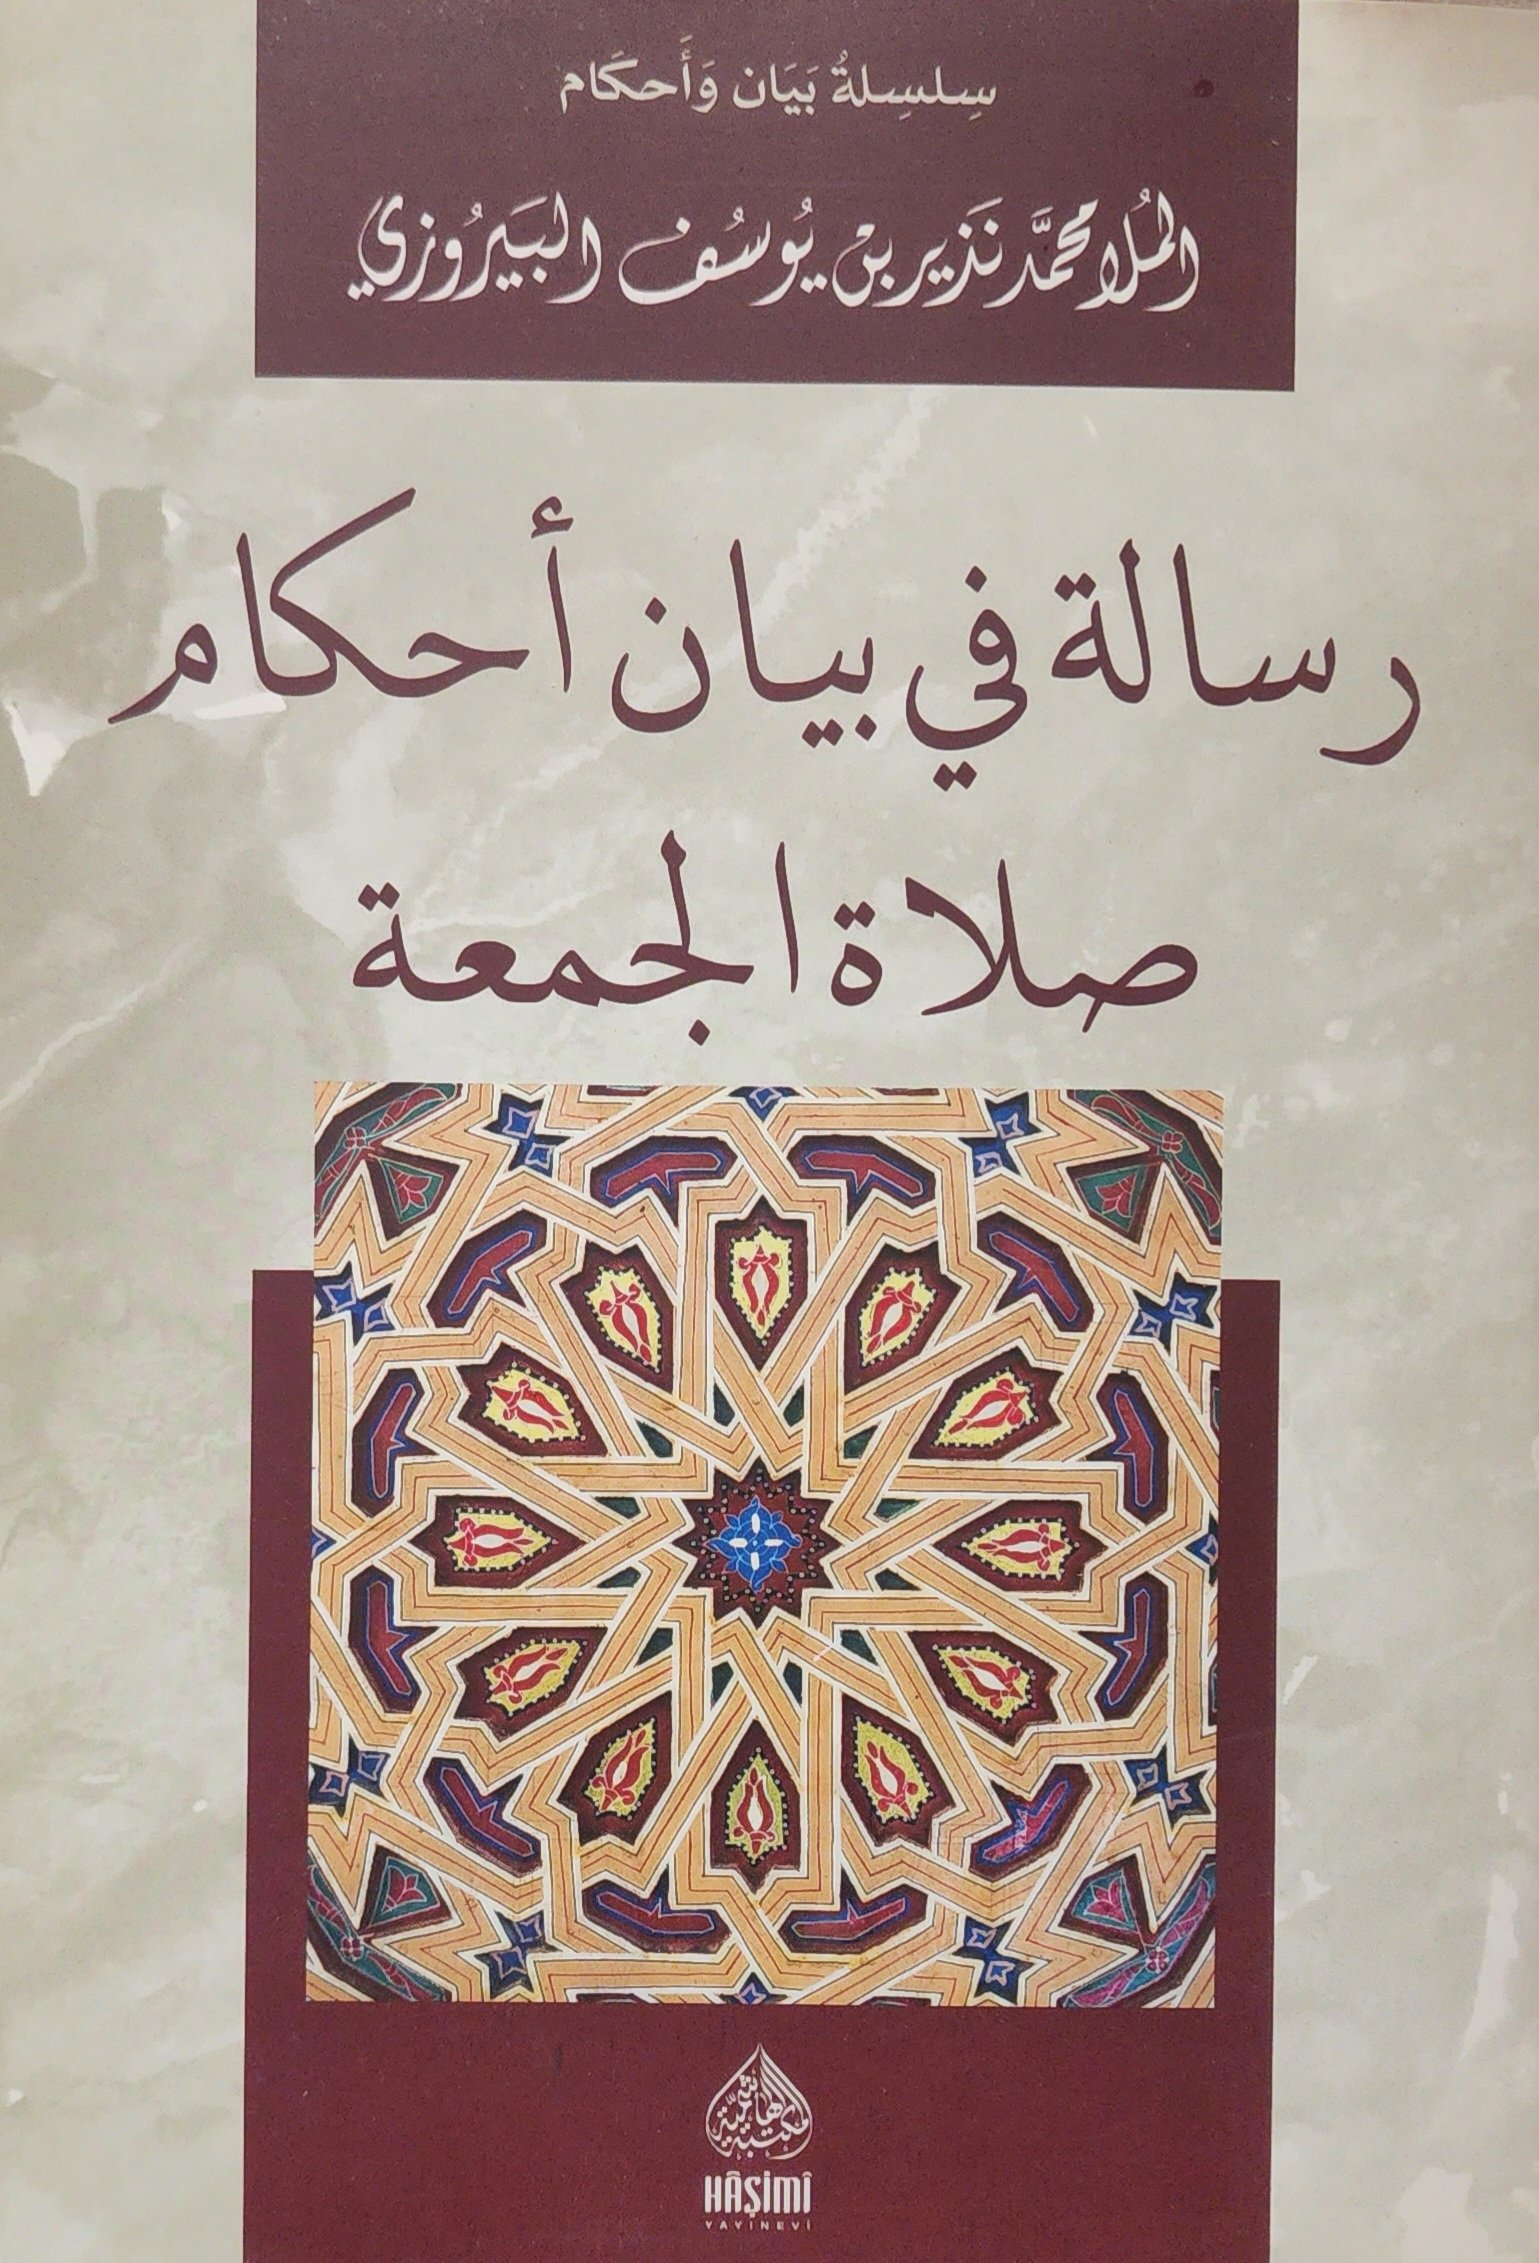 سِلسِلةُ بَيَان وَأَحكَام
المُلا محمَّد نَذير بن يُوسُف البَيرُوزي
رسالة في بيان أحكام
صلاة الجمعة
المكتبة الهاشمية
HÂŞİMÎ
YAYINEVİ